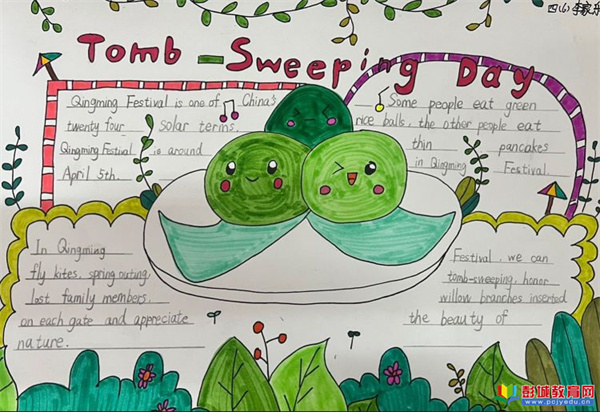 四(6) 李家乐
Tomb-Sweeping Day
Qingming Festival is one of China's
twenty four solar terms.
Qingming Festival is around
April 5th.
Some people eat green
rice balls, the other people eat
thin pancakes
in Qingming Festival.
In Qingming
fly kites, spring outing,
lost family members.
on each gate and appreciate
nature.
Festival, we can
tomb-sweeping, honor
willow branches inserted
the beauty of
彭城教育网
www.pcjyedu.cn